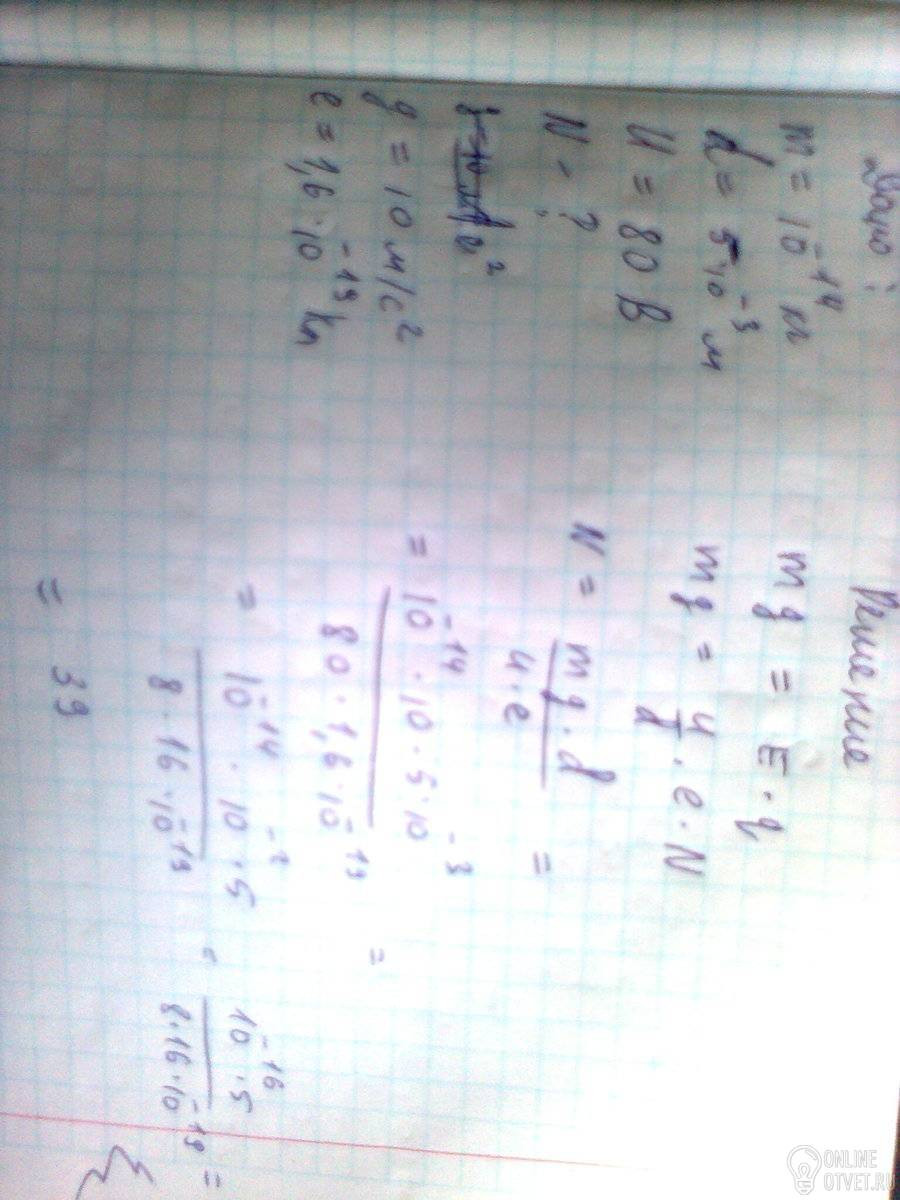 Дано:
m = 10⁻¹⁴ кг
d = 5·10⁻³ м
U = 80 В
N - ?
g = 10 м/с²
e = 1,6·10⁻¹⁹ Кл
Решение
mg = E·q
mg = U/d · e·N
N = mg·d / U·e =
= 10⁻¹⁴·10·5·10⁻³ / 80·1,6·10⁻¹⁹ =
= 10⁻¹⁴·10⁻²·5 / 8·16·10⁻¹⁹ = 10⁻¹⁶·5 / 8·16·10⁻¹⁹ =
= 39
ONLINE
OTVET.RU